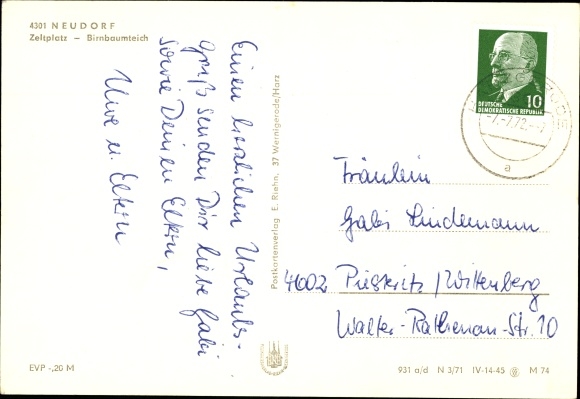 4301 NEUDORF
Zeltplatz — Birnbaumteich
Einen herzlichen Urlaubs-
gruß senden Dir liebe Gabi
sowie Deinen Eltern,
Uwe u. Eltern
Postkartenverlag E. Riehn, 37 Wernigerode/Harz
10
DEUTSCHE
DEMOKRATISCHE REPUBLIK
a
Fräulein
Gabi Lindemann
4602 Piesteritz/Wittenberg
Walter-Rathenau-Str. 10
EVP -,20 M
931 a/d N 3/71 IV-14-45 M 74